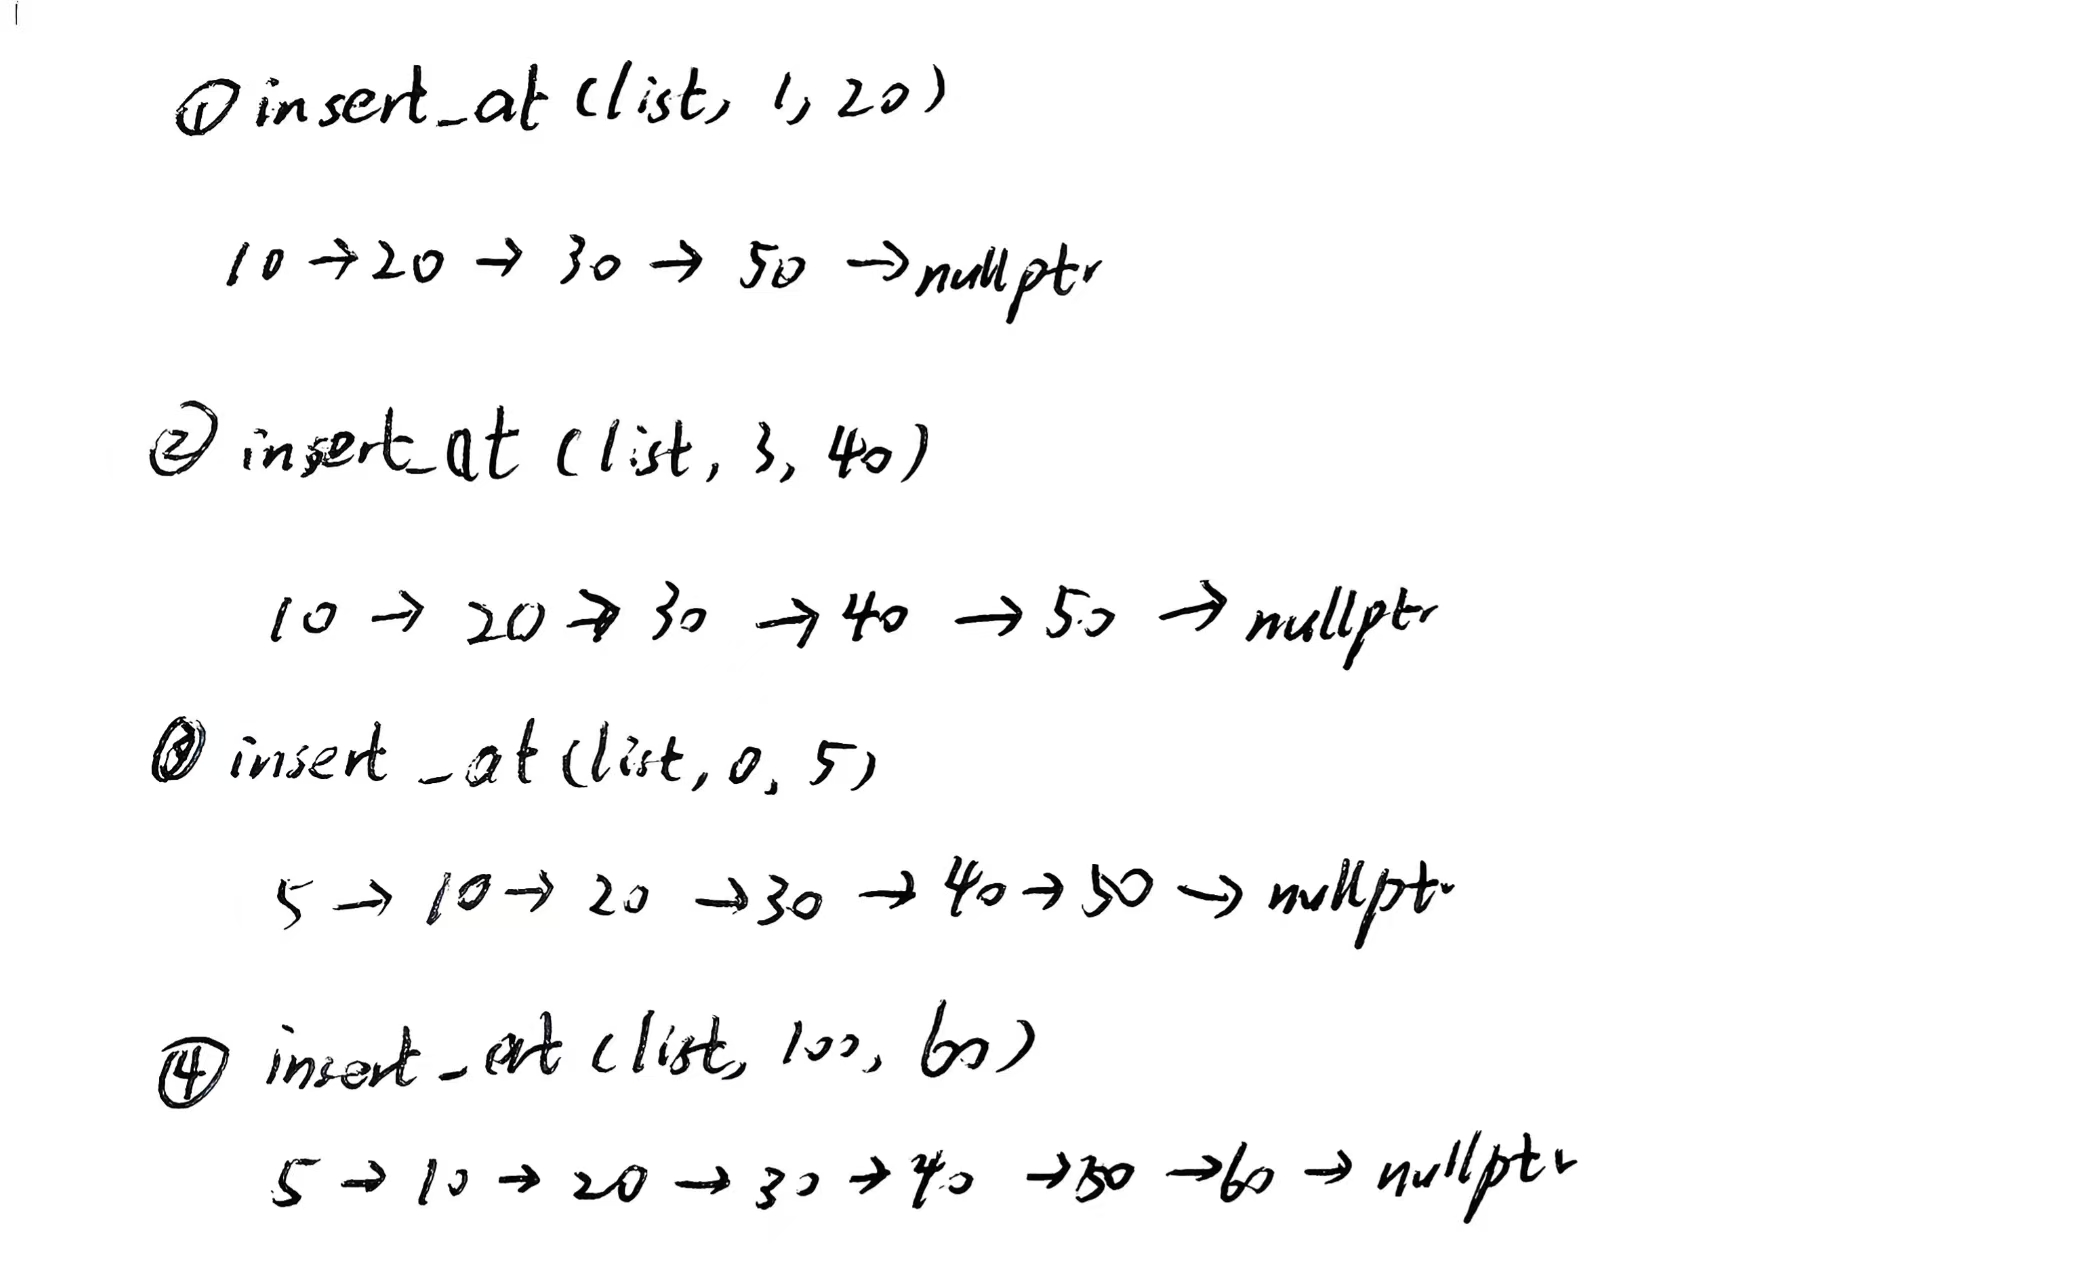 ① insert_at (list, 1, 20)
10 → 20 → 30 → 50 → nullptr
② insert_at (list, 3, 40)
10 → 20 → 30 → 40 → 50 → nullptr
③ insert_at (list, 0, 5)
5 → 10 → 20 → 30 → 40 → 50 → nullptr
④ insert_at (list, 100, 60)
5 → 10 → 20 → 30 → 40 → 50 → 60 → nullptr